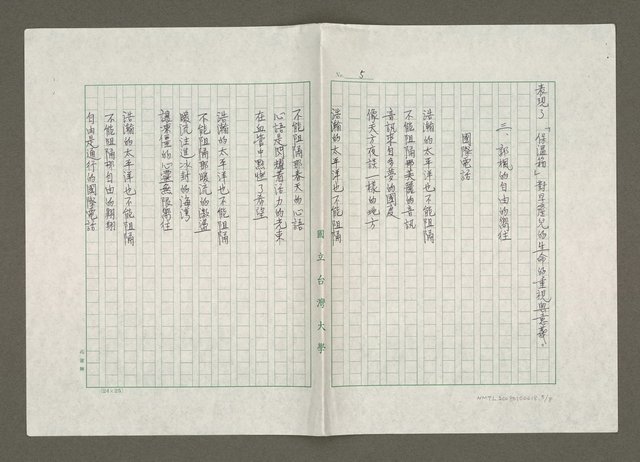 No. 5
表現了「保溫箱」對早產兒的生命的重視與意義。
三、郭楓的自由的嚮往
國際電話
浩瀚的太平洋也不能阻隔
不能阻隔那美麗的音訊
音訊來自多夢的國度
像天方夜談一樣的地方
浩瀚的太平洋也不能阻隔
國立台灣大學
不能阻隔那春天的心語
心語是閃耀著活力的光束
在血管中點燃了希望
浩瀚的太平洋也不能阻隔
不能阻隔那暖流的激盪
暖流注進冰封的海灣
讓凍僵的心靈無限嚮往
浩瀚的太平洋也不能阻隔
不能阻隔那自由的翱翔
自由是通行的國際電話
(24×25)
NMTL20090100018.5/8